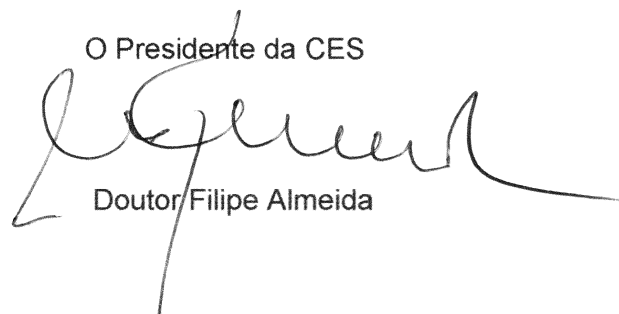 O Presidente da CES
Doutor Filipe Almeida